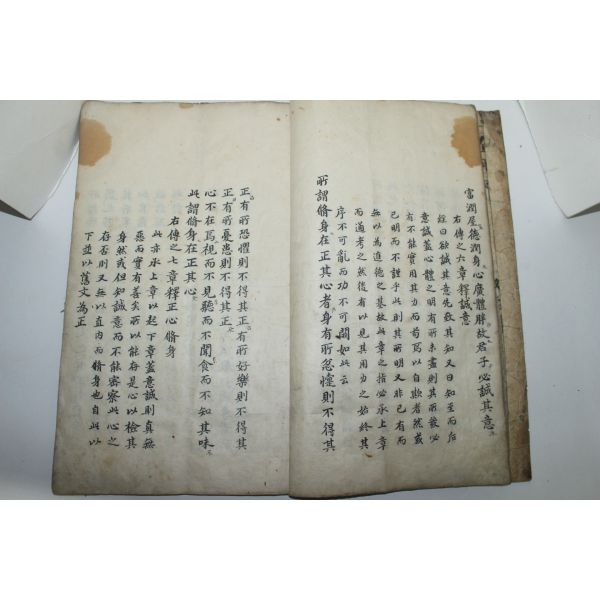 富潤屋德潤身心廣體胖故君子必誠其意
右傳之六章釋誠意
經曰欲誠其意先致其知又曰知至而后
意誠盖心體之明有所未盡則其所發必
有不能實用其力而苟焉以自欺者然或
已明而不謹乎此則其所明又非已有而
無以為進德之基故此章之指必承上章
而通考之然後有以見其用力之始終其
序不可亂而功不可闕如此云
所謂脩身在正其心者身有所忿懥則不得其
正有所恐懼則不得其正有所好樂則不得其
正有所憂患則不得其正
心不在焉視而不見聽而不聞食而不知其味
此謂脩身在正其心
右傳之七章釋正心脩身
此亦承上章以起下章盖意誠則真無
惡而實有善矣所以能存是心以檢其
身然或但知誠意而不能密察此心之
存否則又無以直内而脩身也自此以
下並以舊文為正